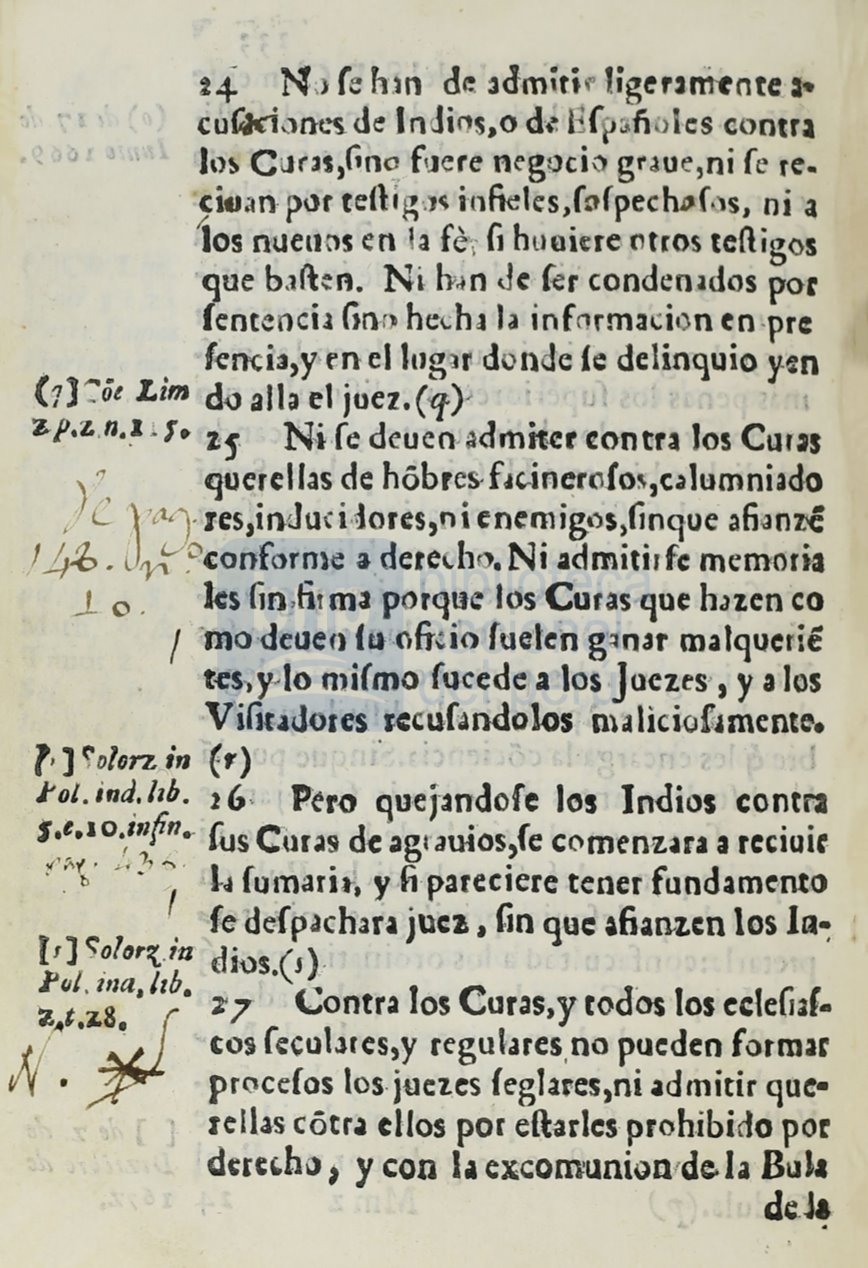 24 No se han de admitir ligeramente a-
cusaciones de Indios, o de Españoles contra
los Curas, sino fuere negocio graue, ni se re-
ciuan por testigos infieles, sospechosos, ni a
los nueuos en la fè, si huuiere otros testigos
que basten. Ni han de ser condenados por
sentencia sino hecha la informacion en pre
sencia, y en el lugar donde se delinquio yen
do alla el juez. (q)
(q] Cõc Lim
2 p. 2 n. 1 . 5.
25 Ni se deuen admiter contra los Curas
querellas de hõbres facinerosos, calumniado
res, inducidores, ni enemigos, sinque afianzẽ
conforme a derecho. Ni admitirse memoria
les sin firma porque los Curas que hazen co
mo deuen su oficio suelen ganar malqueriẽ
tes, y lo mismo sucede a los Juezes, y a los
Visitadores recusandolos maliciosamente.
(r)
pag.
148. nº
10.
[r] Solorz in
Pol. ind. lib.
5. c. 10. in fin.
26 Pero quejandose los Indios contra
sus Curas de agrauios, se comenzara a reciuir
la sumaria, y si pareciere tener fundamento
se despachara juez, sin que afianzen los In-
dios. (s)
[s] Solorz in
Pol. ind, lib.
2. c. 28.
N.
27 Contra los Curas, y todos los eclesias-
cos seculares, y regulares no pueden formar
procesos los juezes seglares, ni admitir que-
rellas cõtra ellos por estarles prohibido por
derecho, y con la excomunion de la Bula
de la